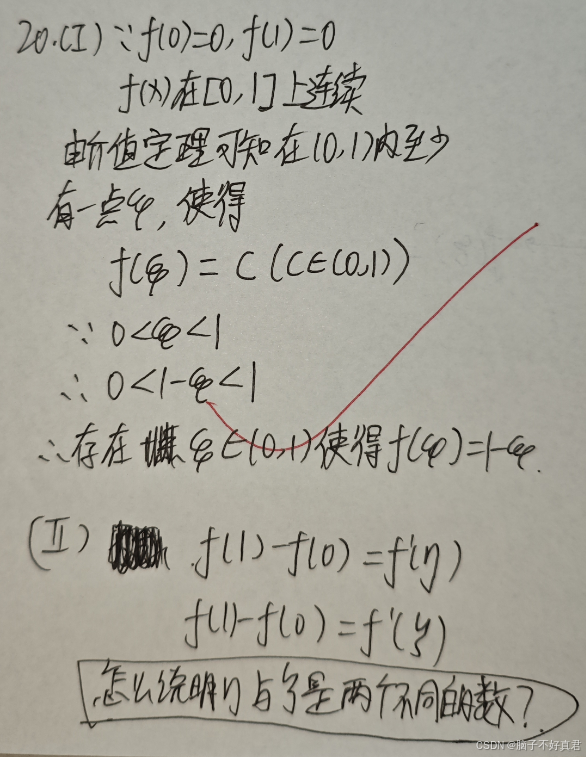 20.(I) ∵ f(0)=0, f(1)=0
f(x)在[0,1]上连续
由介值定理可知在(0,1)内至少
有一点ξ, 使得
f(ξ) = C (C∈(0,1))
∵ 0<ξ<1
∴ 0<1-ξ<1
∴存在 ξ∈(0,1)使得f(ξ)=1-ξ.
(II) f(1)-f(0)=f'(η)
f(1)-f(0)=f'(ζ)
怎么说明η与ζ是两个不同的数?
CSDN @脑子不好真君